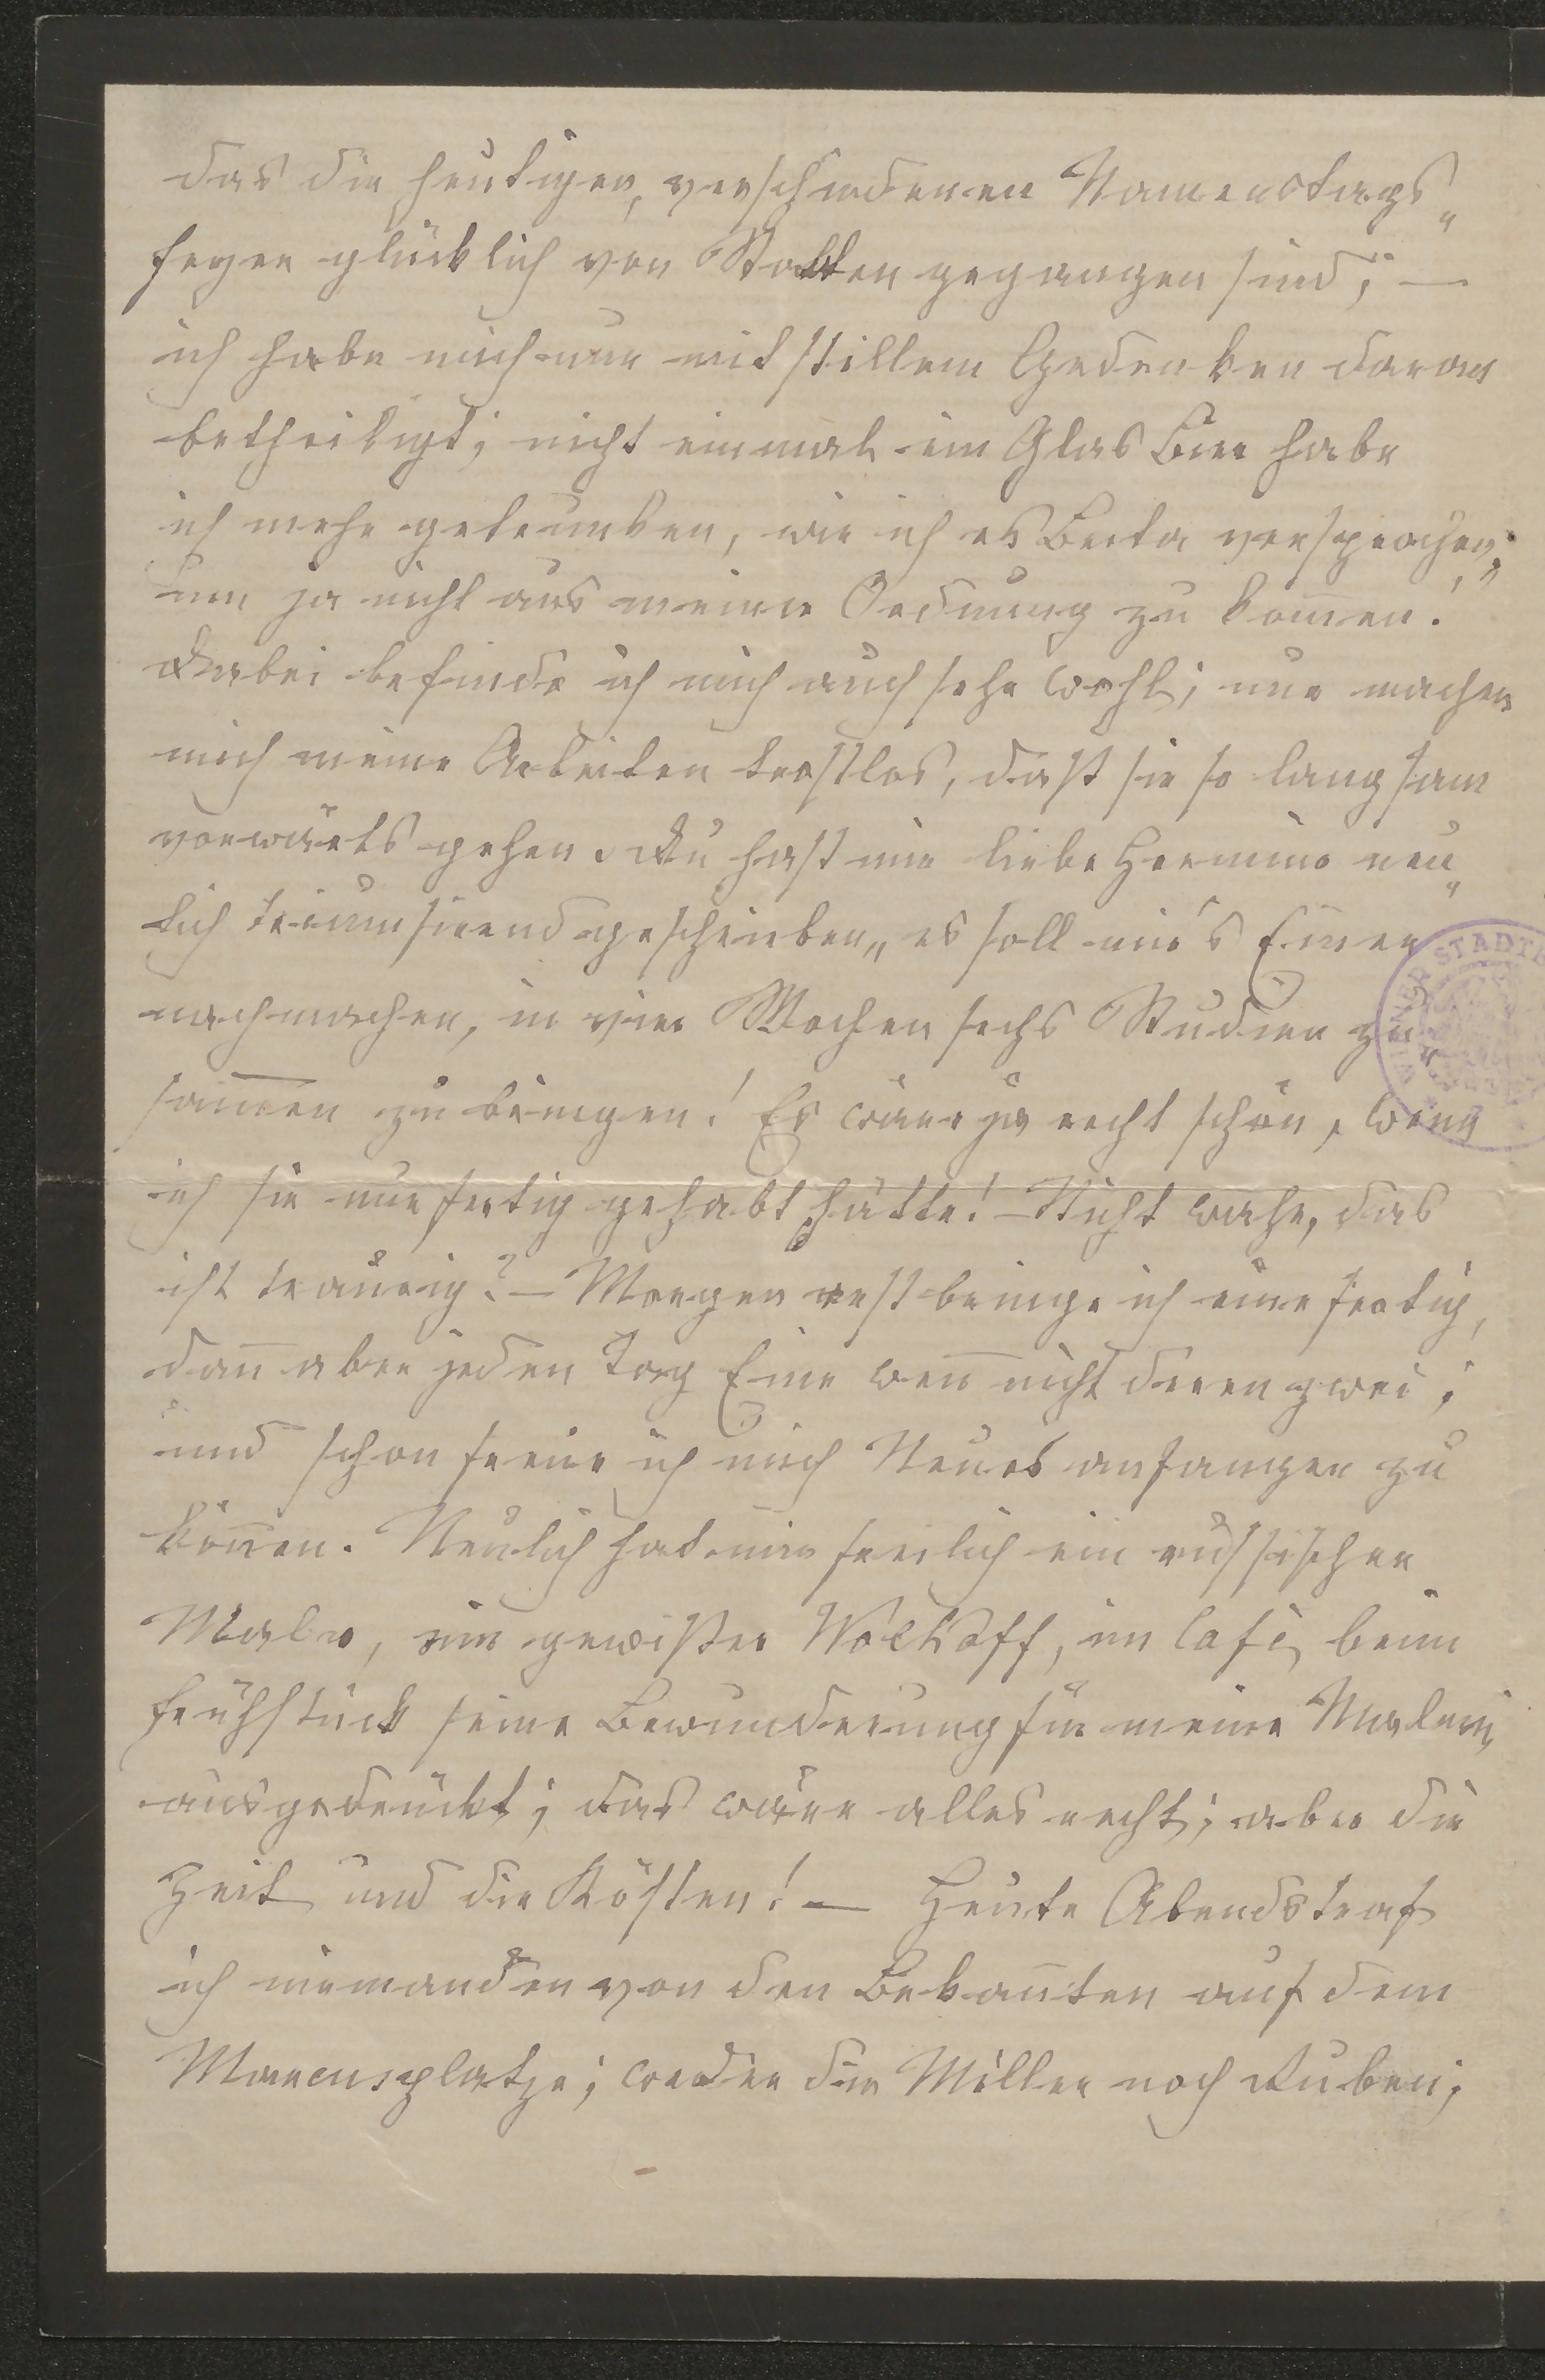 das die heutigen, verschiedenen Namenstags„
feyer glücklich von Statten gegangen sind; —
ich habe mich nur mit stillem Gedenken daran
betheiligt; nicht einmal ein Glas Bier habe
ich mehr getrunken, wie ich es Berta versprochen;
um ja nicht aus meiner Ordnung zu kom̄en!
Dabei befinde ich mich auch sehr wohl; nur machen
mich meine Arbeiten trostlos, daß sie so langsam
vorwärts gehen. Du hast mir liebe Hermine neu„
lich triumfirend geschrieben „es soll mir's Einer
nachmachen, in vier Wochen sechs Studien zu„
sam̄en zu bringen! Es wäre ja recht schön, wenn
ich sie nur fertig gehabt hätte! – Nicht wahr, das
ist traurig? – Morgen erst bringe ich eine fertig,
dan̄ aber jeden Tag Eine wen̄ nicht deren zwei;
und schon freue ich mich Neues anfangen zu
kön̄en. Neulich hat mir freilich ein russischer
Maler, ein gewißer Wolkoff, im Café beim
Frühstück seine Bewunderung für meine Malerei
ausgedrückt; das wäre alles recht; aber die
Zeit und die Kosten! — Heute Abends traf
ich niemanden von den Bekan̄ten auf dem
Marcusplatze; weder die Miller noch Ruben;
WIENER STADTB